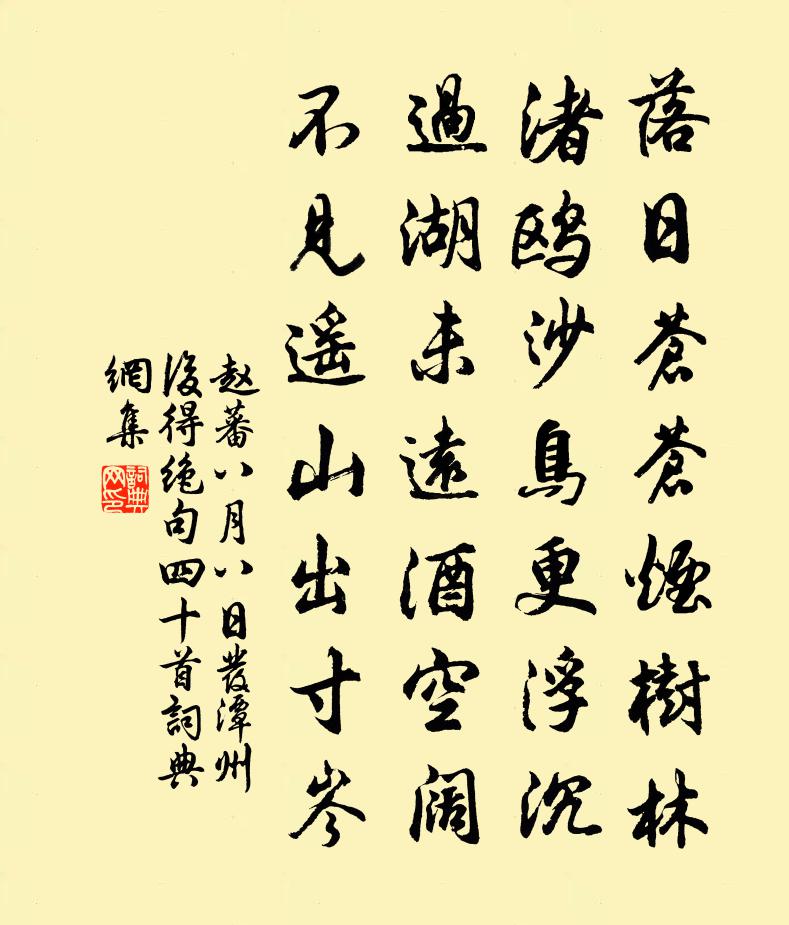 落日蒼蒼煙樹林
渚鸥沙鳥更浮沉
過湖未遠酒空阔
不見遥山出寸岑
赵蕃八月八日發潭州
後得绝句四十首詞典
網集
詞典
网印